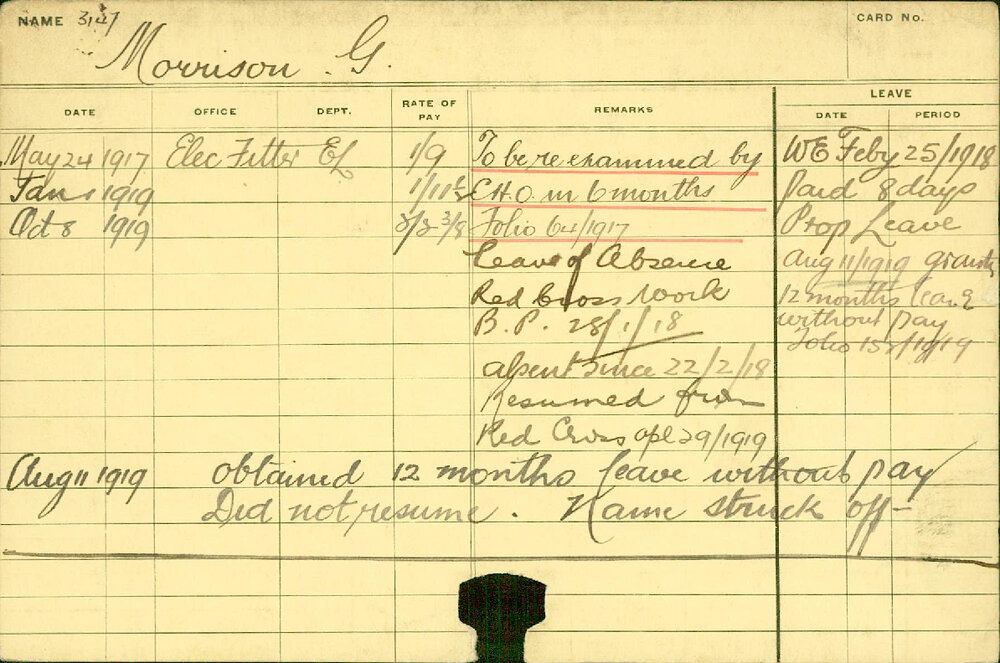 NAME 3147
CARD No.
Morrison G.
DATE OFFICE DEPT. RATE OF PAY REMARKS LEAVE
DATE PERIOD
May 24 1917 Elec Fitter EL 1/9 To be re examined by
Jan 1 1919 1/11½ C.H.O. in 6 months
Oct 8 1919 2/2 3/8 Folio 64/1917
Leave of Absence
Red Cross Work
B.P. 28/1/18
absent since 22/2/18
Resumed from
Red Cross apl 29/1919
WE Feby 25/1918
Paid 8 days
Prop Leave
Aug 11/1919 grants
12 months leave
without pay
Folio 19
Aug 11 1919 obtained 12 months leave without pay
Did not resume. Name struck off-